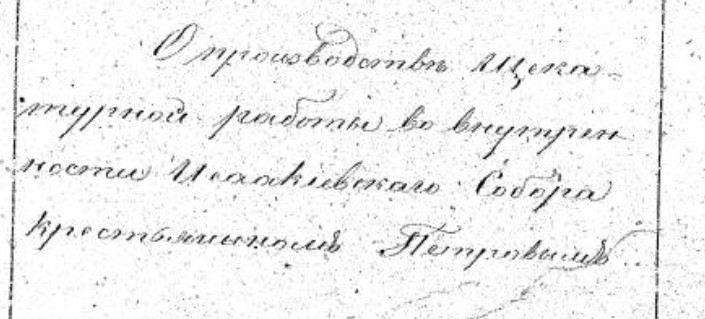 О производствѣ Щека-
турной работы во внутрен
ности Исаакіевскаго Собора
крестьяниномъ Петровымъ